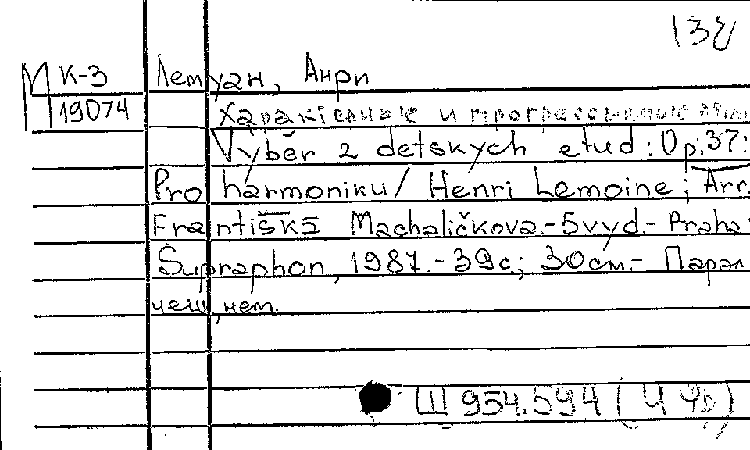 138
М К-3 Лемуан, Анри
19074 Характерные и прогрессивные
Vyběr z detskych etud: Op.37:
Pro harmoniku/ Henri Lemoine; Arr.
Františka Machaličkova.-5vyd.- Praha
Supraphon, 1987.-39с; 30см.- Парал
чеш, нем.
Щ 954.594 (4 Че)